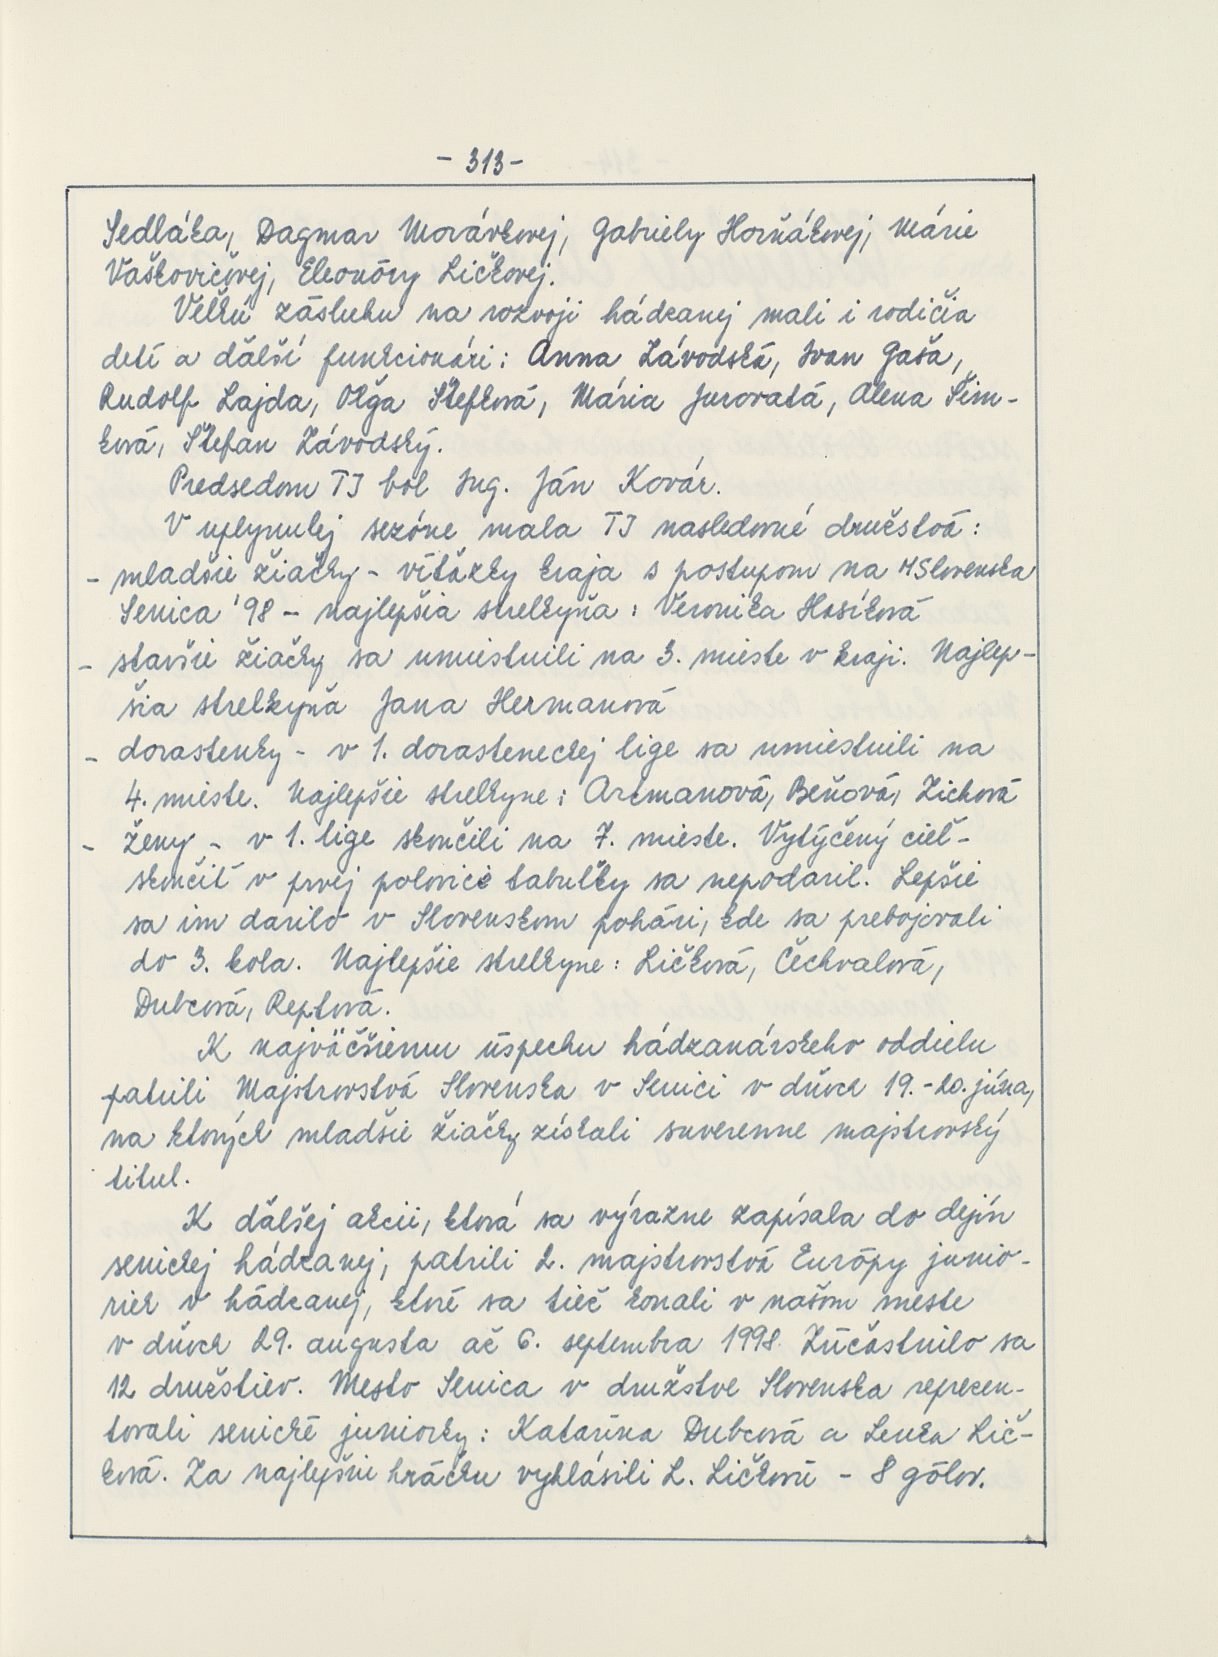 - 313 -
Sedláka, Dagmar Morávkovej, Gabriely Horňákovej, Márie
Vaškovičovej, Eleonóry Ličkovej.
Veľkú zásluhu na rozvoji hádzanej mali i rodičia
detí a ďalší funkcionári: Anna Závodská, Ivan Gaša,
Rudolf Lajda, Oľga Štefková, Mária Jurovatá, Alena Šim-
ková, Štefan Závodský.
Predsedom TJ bol Ing. Ján Kovár.
V uplynulej sezóne mala TJ nasledovné družstvá:
- mladšie žiačky - víťazky kraja s postupom na MSlovenska
Senica '98 - najlepšia strelkyňa: Veronika Hosíková
- staršie žiačky sa umiestnili na 3. mieste v kraji. Najlep-
šia strelkyňa Jana Hermanová
- dorastenky - v 1. dorasteneckej lige sa umiestnili na
4. mieste. Najlepšie strelkyne: Arcmanová, Beňová, Zichová
- ženy - v 1. lige skončili na 7. mieste. Vytýčený cieľ -
skončiť v prvej polovici tabuľky sa nepodaril. Lepšie
sa im darilo v Slovenskom pohári, kde sa prebojovali
do 3. kola. Najlepšie strelkyne: Ličková, Čechvalová,
Dubcová, Reptová.
K najväčšiemu úspechu hádzanárskeho oddielu
patrili Majstrovstvá Slovenska v Senici v dňoch 19.-20. júna,
na ktorých mladšie žiačky získali suverenne majstrovský
titul.
K ďalšej akcii, ktorá sa výrazne zapísala do dejín
senickej hádzanej, patrili 2. majstrovstvá Európy junio-
riek v hádzanej, ktoré sa tiež konali v našom meste
v dňoch 29. augusta až 6. septembra 1998. Zúčastnilo sa
12 družstiev. Mesto Senica v družstve Slovenska reprezen-
tovali senické juniorky: Katarína Dubcová a Lenka Lič-
ková. Za najlepšiu hráčku vyhlásili L. Ličkovú - 8 gólov.